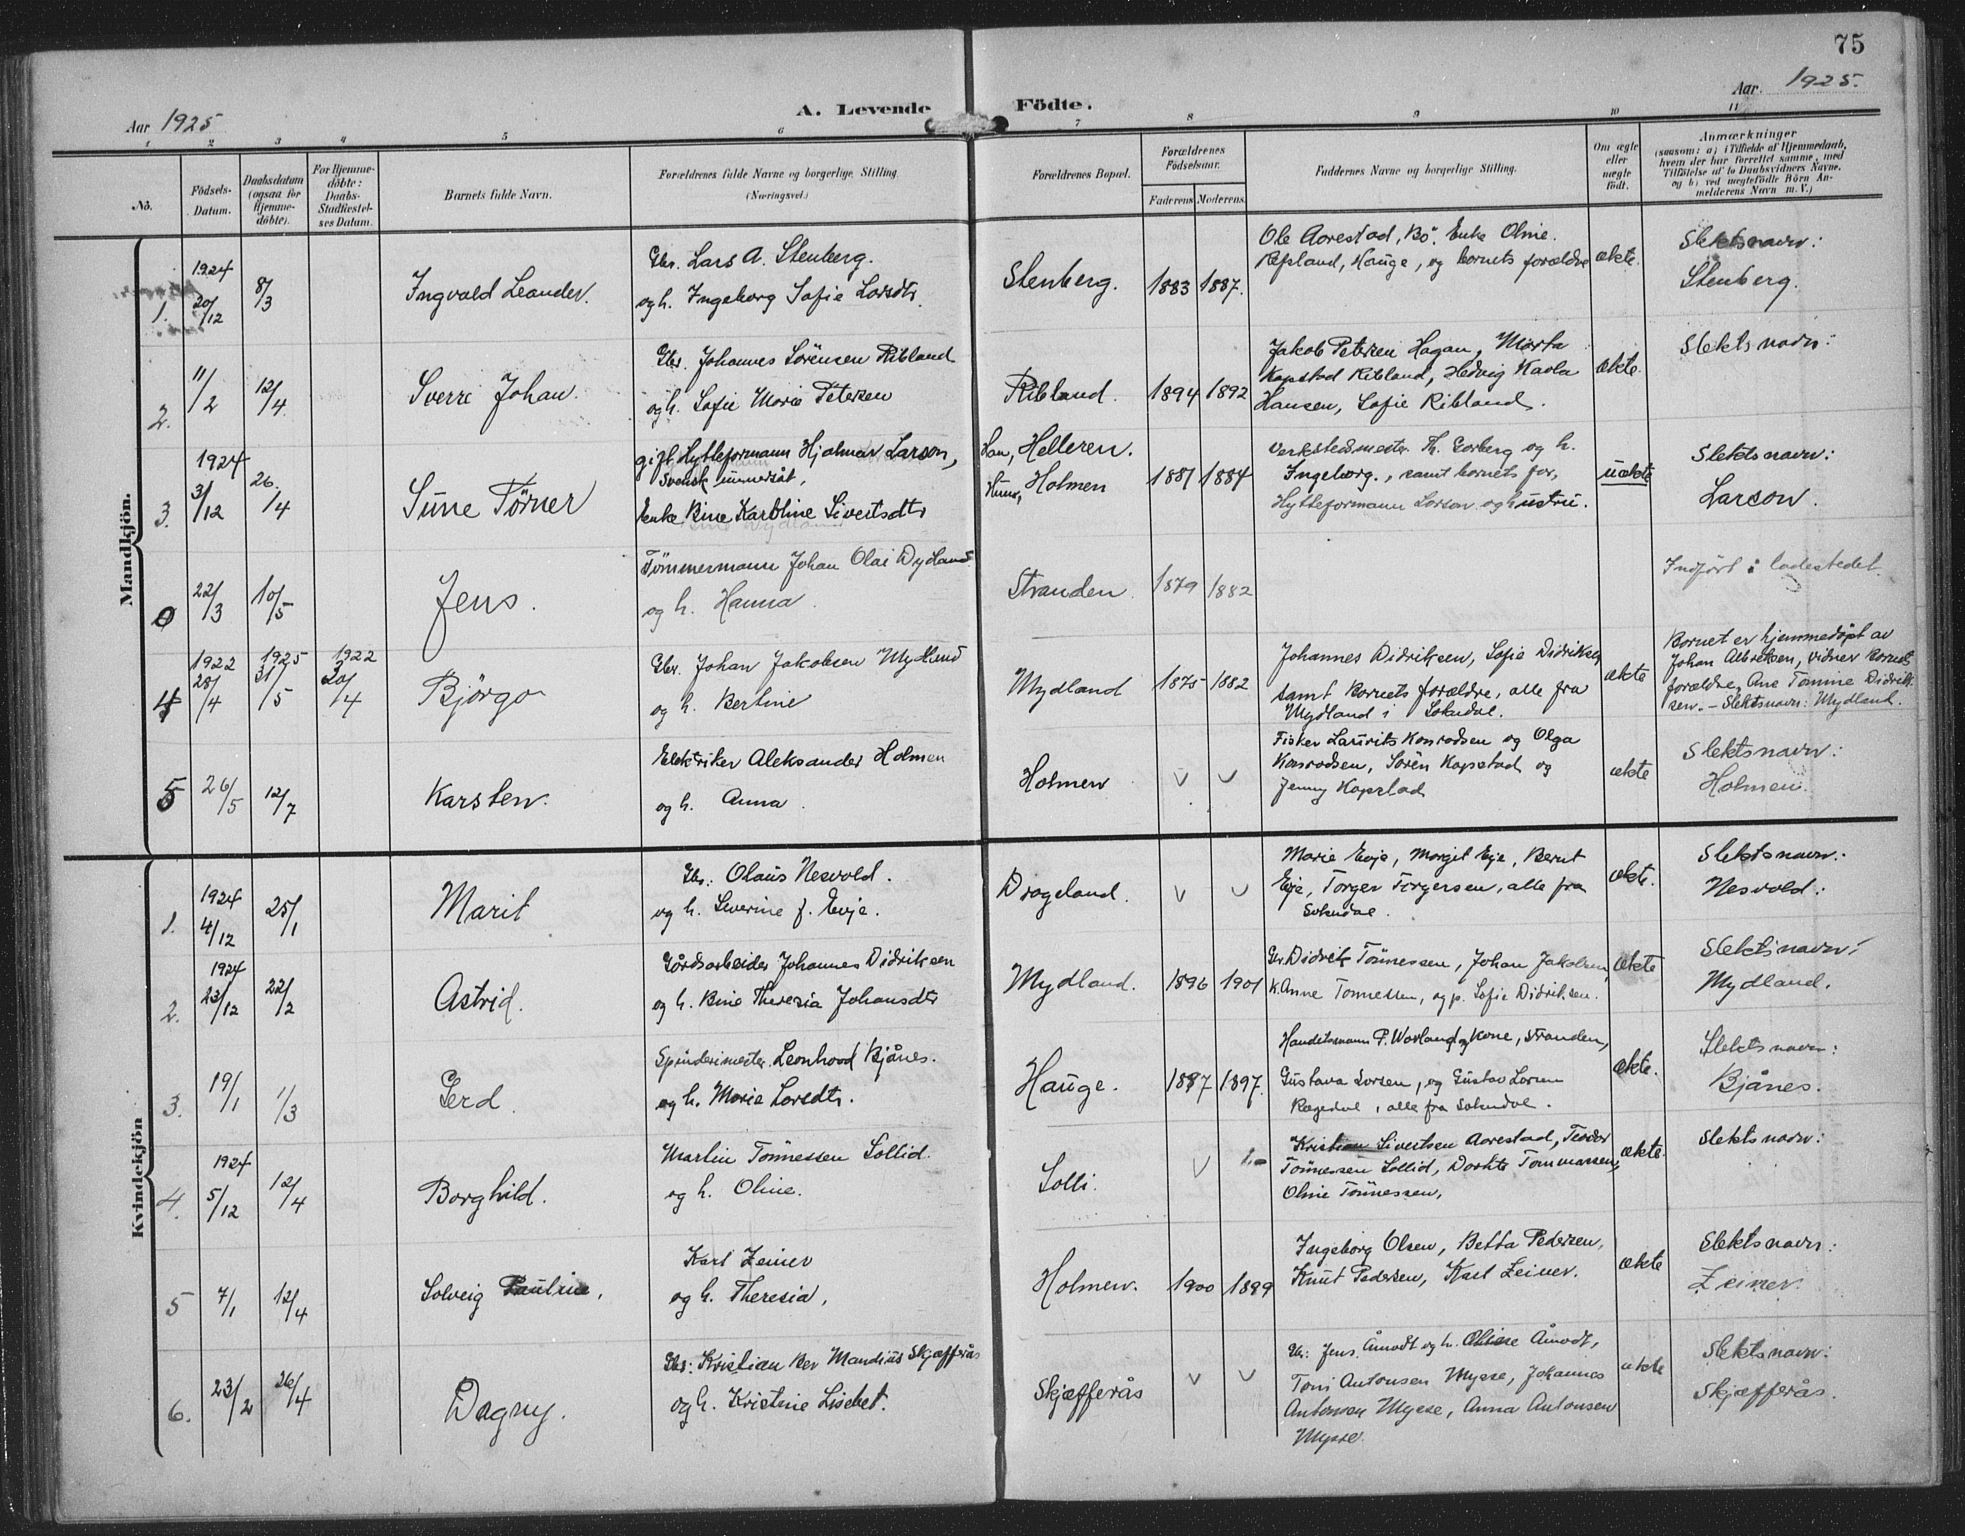 75
Aar 1925
A. Levende
Födte.
Aar 1925.
1 2 3 4 5 6 7 8 9 10 11
No.
Födsels-Datum.
Daabsdatum (ogsaa for Hjemme-döbte).
For Hjemme-döbte: Daabs-Stadfæstel-ses Datum.
Barnets fulde Navn.
Forældrenes fulde Navne og borgerlige Stilling.
(Næringsvei.)
Forældrenes Bopæl.
Forældrenes Födselsaar.
Faderens. Moderens.
Faddernes Navne og borgerlige Stilling.
Om ægte eller uægte födt.
Anmærkninger
(saasom: a) i Tilfælde af Hjemmedaab,
hvem der har forrettet samme, med
Tilföielse af to Daabsvidners Navne.
og b) ved uægtefödte Börn An-
melderens Navn m. V.)
Mandkjön.
1. 1924 20/12 8/3 Ingvald Leander.
Gbr. Lars A. Stenberg.
og h. Ingeborg Sofie Larsdtr.
Stenberg. 1883 1887.
Ole Aarestad, Bö. Enke Oline
Refsland, Hauge, og barnets forældre
ekte.
Slektsnavn:
Stenberg.
2. 11/2 12/4 Sverre Johan.
Gbr. Johannes Sörensen Ribland
og h. Sofie Marie Petersen
Ribland. 1894 1892
Jakob Petersen Hagan, Marta
Kapstad Ribland, Hedvig Karla
Hansen, Sofie Ribland.
ekte.
Slektsnavn:
3. 1924 3/12 26./4 Sune Törner
gift Hytteformann Hjalmar Larson,
Svensk undersåt,
Enke Bine Karoline Sivertsdtr
Han, Helleren.
Hun, Holmen
1881 1884
Verkstedsmester Th. Gorberg og h.
Ingeborg., samt barnets far,
Hytteformann Larson og hustru.
uekte
Slektsnavn:
Larson.
0 22/3 10/5 Jens.
Tömmermann Johan Olai Dydland
og h. Hanna.
Stranden. 1879 1882
Indfört i ladestedet.
4 1922 28/4 1925 31/5 1922 30/4 Björgo
Gbr. Johan Jakobsen Mydland
og h. Bertine
Mydland 1875 1882
Johannes Didriksen, Sofie Didriksen
samt Barnets forældre, alle fra
Mydland i Sokndal.
ekte
Barnet er hjemmedöpt av
Johan Albretsen, vidner barnets
forældre, Ane Tomine Didrik-
sen. - Slektsnavn: Mydland.
5 26/5 12/7 Karsten.
Elektriker Aleksander Holmen
og h. Anna.
Holmen
Fisker Laurits Konradsen og Olga
Konradsen, Sören Kapstad og
Jenny Kapstad
ekte
Slektsnavn:
Holmen.
Kvindekjön
1. 1924 4/12 25/1 Marit
Gbr: Olaus Nesvold.
og h. Severine f. Evje.
Drageland.
Marie Evje, Margit Eje, Berut
Eje, Torger Torgersen, alle fra
Sokndal.
ekte.
Slektsnavn:
Nesvold:
2. 1924 23/12 22/2 Astrid.
Gårdsarbeider Johannes Didriksen
og h. Bine Theresia Johansdtr
Mydland. 1896 1901
Gr. Didrik Tönnessen, Johan Jakobsen,
K. Anne Tonnessen, og p. Sofie Didriksen.
ekte
Slektsnavn:
Mydland.
3. 19/1 1/3 Gerd.
Spinderimester Leonhard Bjånes.
og h. Marie Larsdtr.
Hauge. 1887 1897.
Handelsmann P. Warland og kone, Stranden,
Gustava Larsen, og Gustav Larsen
Rægedal, alle fra Sokndal.
ekte.
Slektsnavn:
Bjånes.
4. 1924 5/12 12/4 Borghild.
Martin Tönnessen Sollid.
og h. Oline.
Solli.
Kristian Sivertsen Aarestad, Teodor
Tönnessen Sollid, Dorthe Tommassen,
Oline Tönnessen,
ekte.
Slektsnavn:
5 7/1 12/4 Solveig Pauline,
Karl Zeiner
og h. Theresia,
Holmen. 1900 1899
Ingeborg Olsen, Betta Pedersen,
Knut Pedersen, Karl Zeiner.
ekte
Slektsnavn:
Zeiner.
6. 23/2 26/4 Dagny.
Gbr: Kristian Ber Mandius Skjæfferås
og h. Kristine Lisebet.
Skjæfferås
Gbr: Jens Åmodt og h. Åmodt,
Toni Antonsen Mysse, Johannes
Antonsen Mysse, Anna Antonsen
Mysse.
ekte
Slektsnavn:
Skjæfferås.